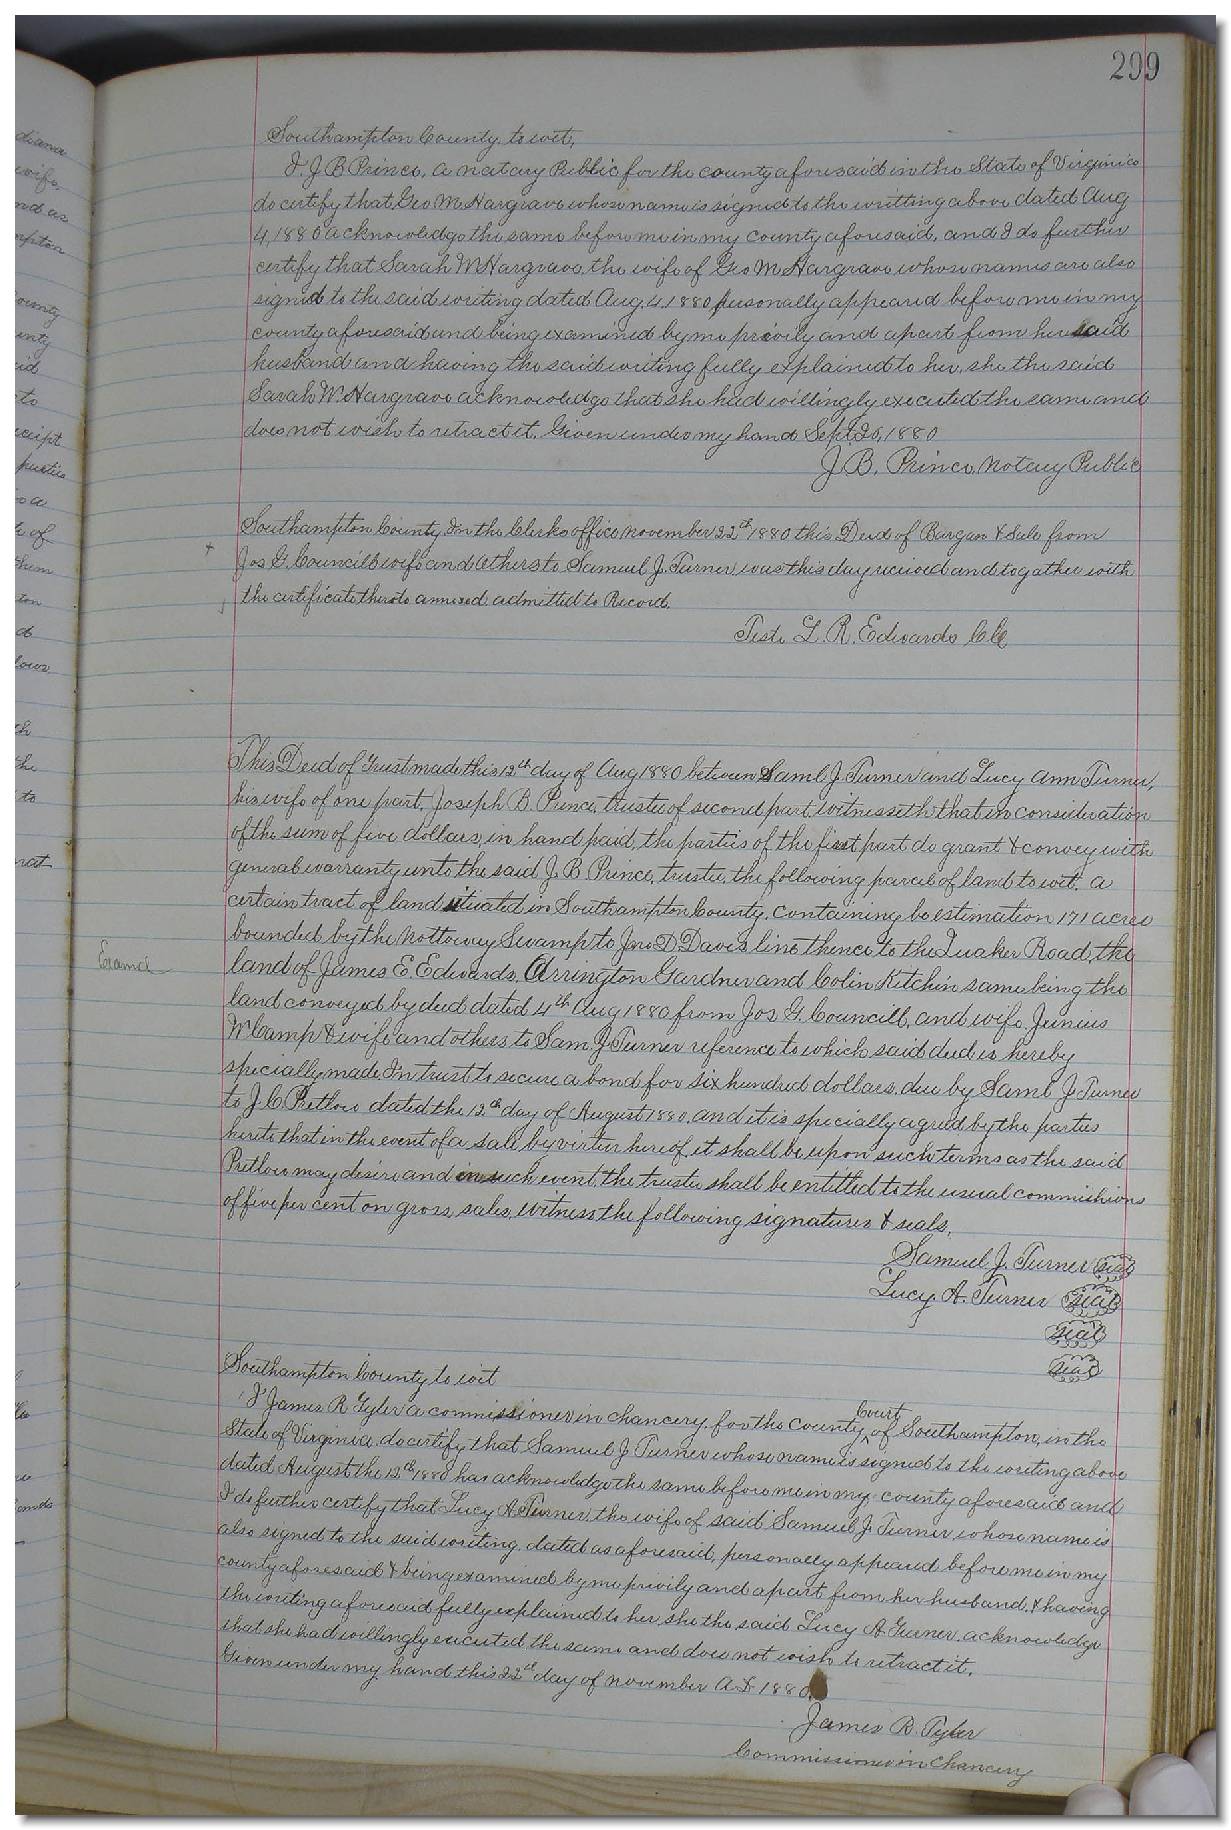 299
Southampton County, to wit,
I. J B Prince, a notary Public for the county aforesaid in the State of Virginia
do certify that Geo M Hargrave whose name is signed to the writting above dated Aug
4, 1880 acknowledge the same before me in my county aforesaid, and I do further
certify that Sarah W Hargrave, the wife of Geo M Hargrave whose names are also
signed to the said writing dated Aug 4, 1880, personally appeared before me in my
county aforesaid and being examined by me privily and apart from her said
husband and having the said writing fully explained to her, she the said
Sarah W. Hargrave acknowledge that she had willingly executed the same and
does not wish to retract it. Given under my hand Sept. 20, 1880
J. B. Prince, Notary Public
Southampton County, In the Clerks office november 22th 1880 this Deed of Bargan & Sale from
Jos G. Councill & wife and others to Samuel J. Turner was this day recieved and togather with
the certificate thereto annexed admitted to Record.
Teste L. R. Edwards CC
This Deed of Trust made this 12th day of Aug 1880 between Saml J. Turner and Lucy Ann Turner,
his wife of one part, Joseph B. Prince, trustee of second part, witnesseth that in consideration
of the sum of five dollars, in hand paid, the parties of the first part do grant & convey with
general warranty unto the said J. B Prince, trustee, the following parcel of land to wit. a
certain tract of land situated in Southampton County, containing be estimation 171 acres
bounded by the Nottoway Swamp to Jno D. Davis line thence to the Quaker Road, the
Examd
land of James E. Edwards, Arrington Gardner and Colin Kitchin same being the
land conveyed by deed dated 4th Aug 1880 from Jos. G. Councill, and wife, Junius
W Camp & wife and others to Sam. J Turner reference to which said deed is hereby
specially made In trust to secure a bond for six hundred dollars, due by Saml J. Turner
to J. C Pretlow dated the 12th day of August 1880, and it is specially agreed by the parties
hereto that in the event of a sale by virtue hereof, it shall be upon such terms as the said
Pretlow may desire and in such event, the trustee shall be entitled to the usual commishions
of five per cent on gross, sales, witness the following signatures & seals,
Samuel J. Turner seal
Lucy A. Turner seal
seal
seal
Southampton County to wit
I James R Tyler a commissioner in chancery, for the county Court of Southampton, in the
State of Virginia, do certify that Samuel J Turner whose name is signed to the writing above
dated August the 12th 1880 has acknowledge the same before me in my county aforesaid and
I do further certify that Lucy A Turner, the wife of said Samuel J. Turner whose name is
also signed to the said writing, dated as aforesaid, personally appeared before me in my
county aforesaid & being examined by me privily and apart from her husband, & having
the writing aforesaid fully explained to her, she the said Lucy A Turner, acknowledge
that she had willingly executed the same and does not wish to retract it.
Given under my hand this 22d day of november A D 1880
James R. Tyler
Commissioner in Chancery